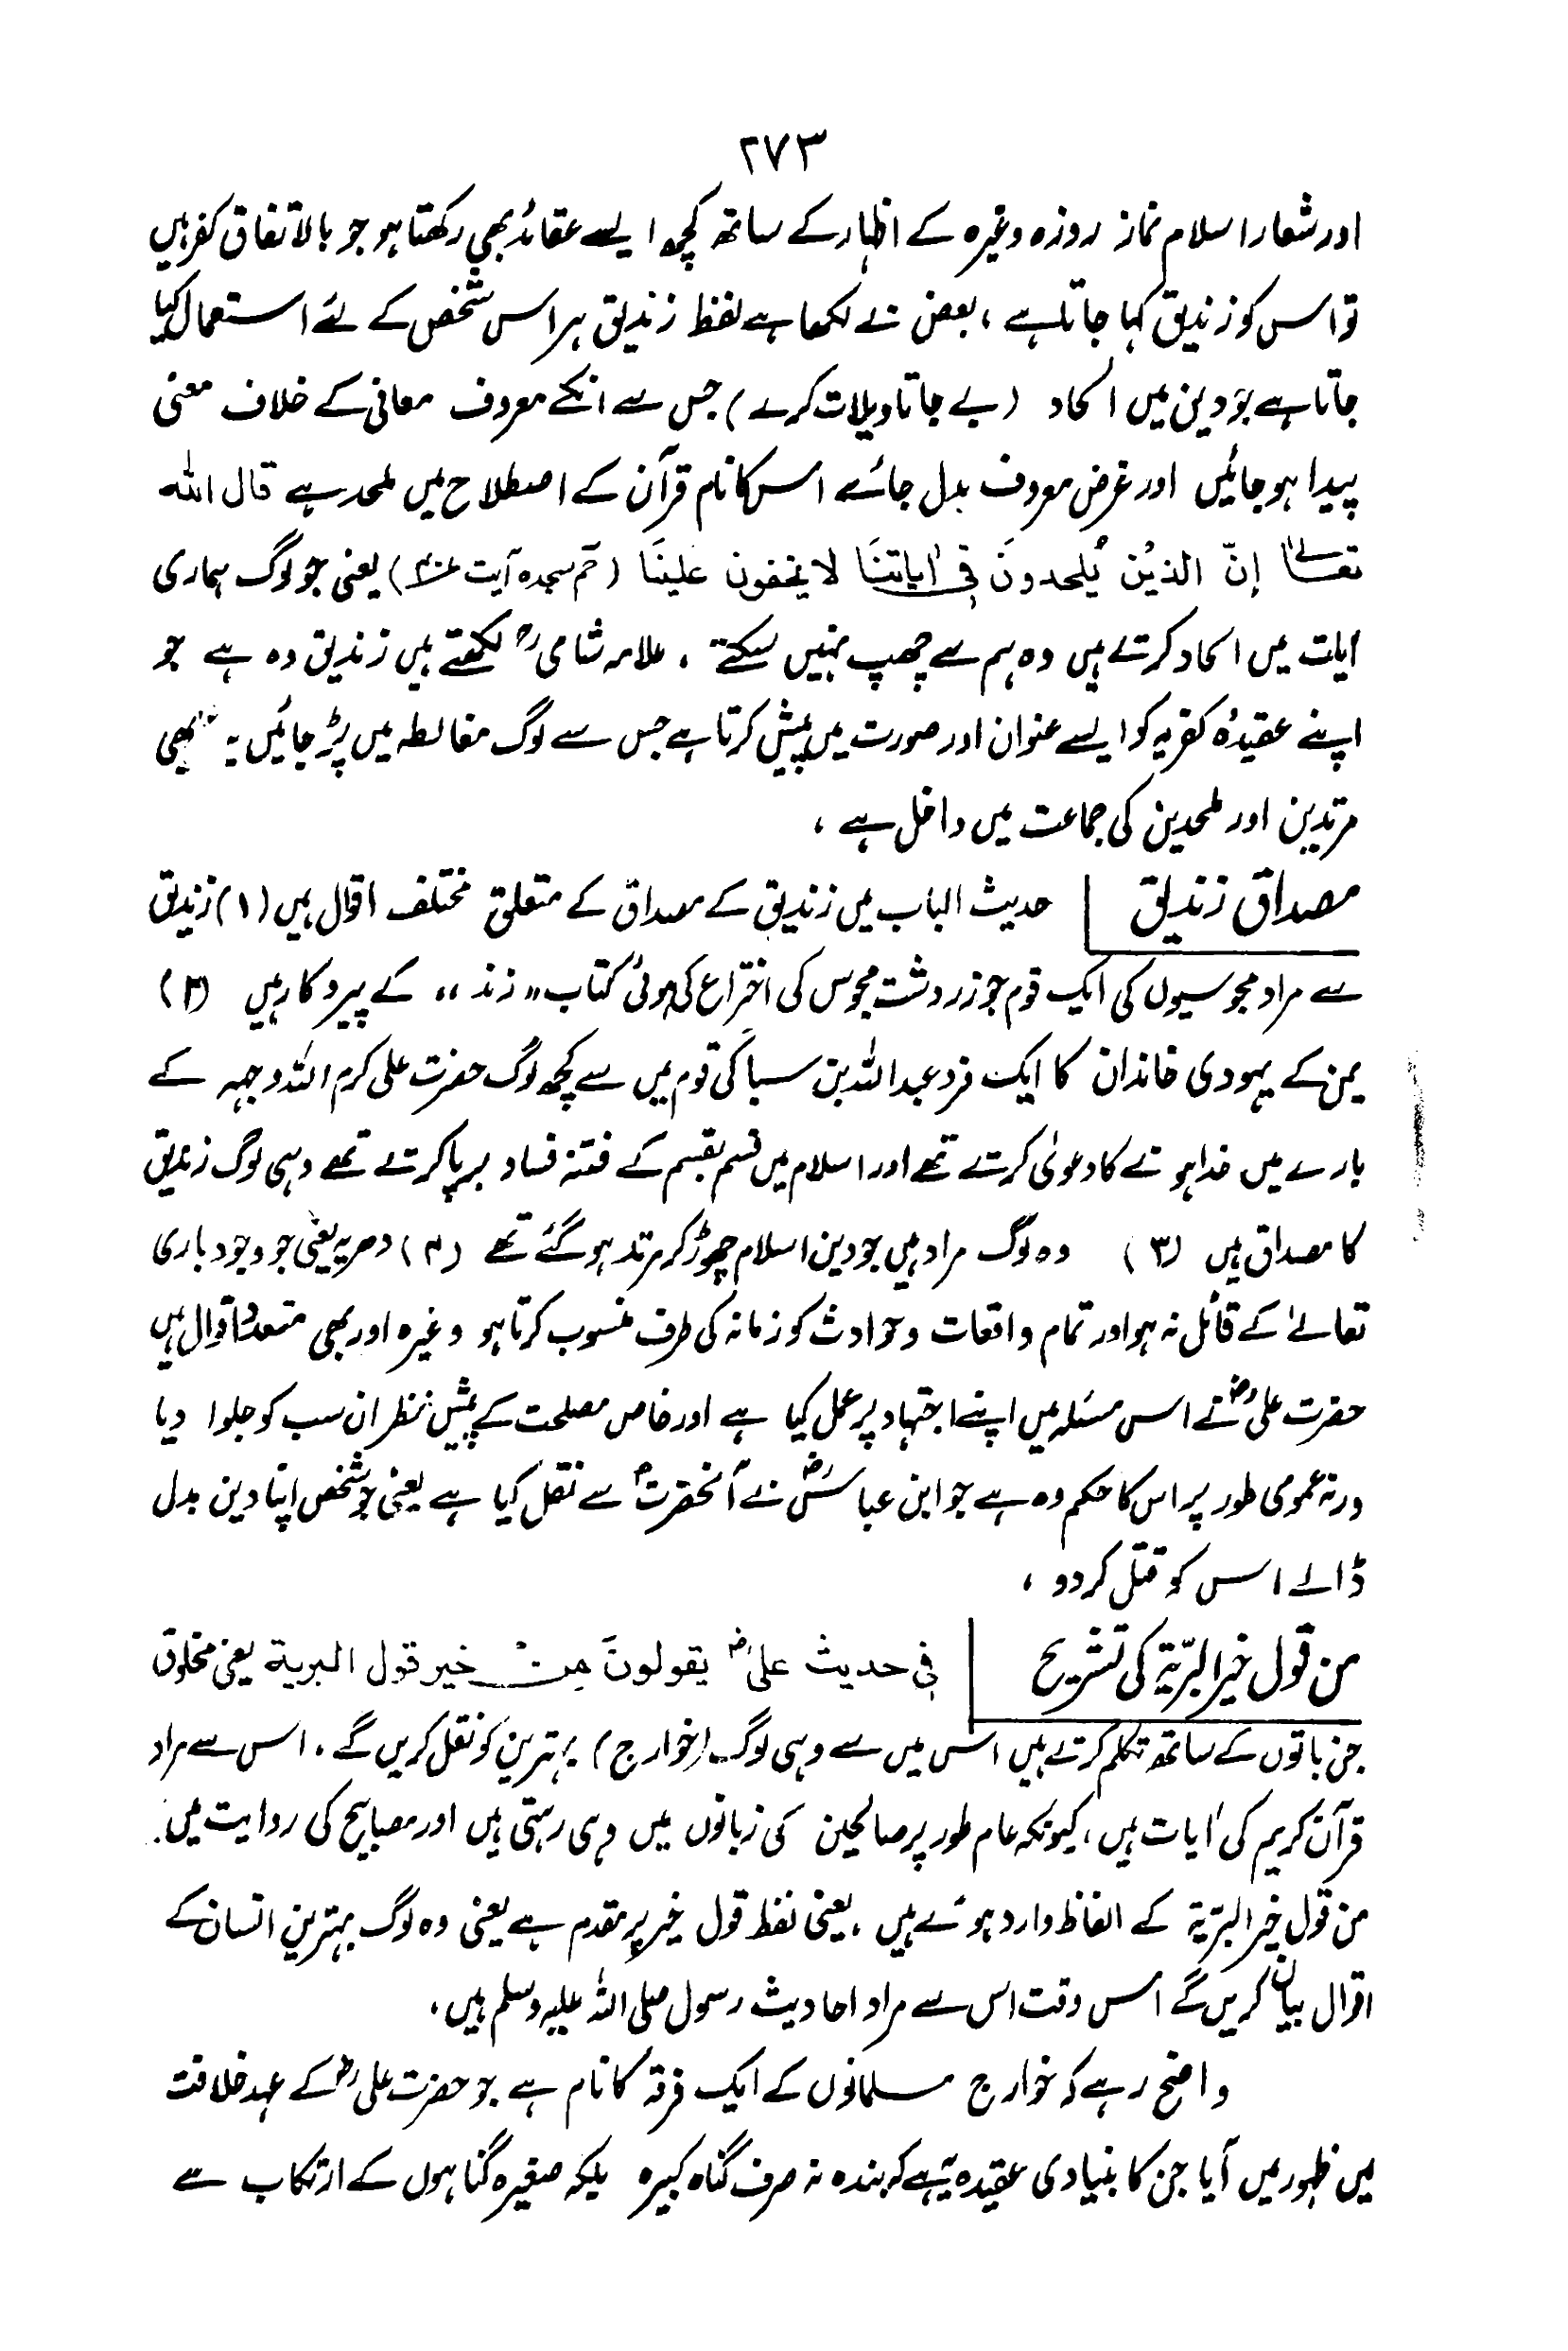 ۲۷۳
اور شعار اسلام نماز روزہ وغیرہ کے اظہار کے ساتھ کچھ ایسے عقائد بھی رکھتا ہو جو بالاتفاق کفر ہیں
تو اس کو زندیق کہا جاتا ہے ، بعض نے لکھا ہے لفظ زندیق ہر اس شخص کے لئے استعمال کیا
جاتا ہے جو دین میں الحاد (بے جا تاویلات کرے) جس سے انکے معروف معانی کے خلاف معنی
پیدا ہو جائیں اور غرض معروف بدل جائے اس کا نام قرآن کے اصطلاح میں ملحد ہے قال اللہ
تعالےٰ إنّ الذين يُلحدونَ في اٰياتنَا لا يخفون علينَا (حٓم سجدہ آیت ) یعنی جو لوگ ہماری
اٰیات میں الحاد کرتے ہیں وہ ہم سے چھپ نہیں سکتے ۔ علامہ شامیؒ لکھتے ہیں زندیق وہ ہے جو
اپنے عقیدۂ کفریہ کو ایسے عنوان اور صورت میں پیش کرتا ہے جس سے لوگ مغالطہ میں پڑ جائیں یہ بھی
مرتدین اور ملحدین کی جماعت میں داخل ہے ،
مصداق زندیق حدیث الباب میں زندیق کے مصداق کے متعلق مختلف اقوال ہیں (۱) زندیق
سے مراد مجوسیوں کی ایک قوم جو زردشت مجوس کی اختراع کی ہوئی کتاب "زند" کے پیروکار ہیں (۲)
یمن کے یہودی خاندان کا ایک فرد عبداللہ بن سبا کی قوم میں سے کچھ لوگ حضرت علی کرم اللہ وجہہ کے
بارے میں خدا ہونے کا دعویٰ کرتے تھے اور اسلام میں قسم بقسم کے فتنہ فساد برپا کرتے تھے وہی لوگ زندیق
کا مصداق ہیں (۳) وہ لوگ مراد ہیں جو دین اسلام چھوڑ کر مرتد ہو گئے تھے (۴) دھریہ یعنی جو وجود باری
تعالےٰ کے قائل نہ ہو اور تمام واقعات وحوادث کو زمانہ کی طرف منسوب کرتا ہو وغیرہ اور بھی متعدد اقوال ہیں
حضرت علیؓ نے اس مسئلہ میں اپنے اجتہاد پر عمل کیا ہے اور خاص مصلحت کے پیش نظر ان سب کو جلوا دیا
ورنہ عمومی طور پر اس کا حکم وہ ہے جو ابن عباسؓ نے آنحضرتؐ سے نقل کیا ہے یعنی جو شخص اپنا دین بدل
ڈالے اس کو قتل کر دو ،
من قول خیر البرّیّۃ کی تشریح فی حدیث علیؓ یقولونَ من خیر قول البریة یعنی مخلوق
جن باتوں کے ساتھ تکلم کرتے ہیں اس میں سے وہی لوگ (خوارج) بہترین کو نقل کریں گے ۔ اس سے مراد
قرآن کریم کی اٰیات ہیں ، کیونکہ عام طور پر صالحین کی زبانوں میں وہی رہتی ہیں اور مصابیح کی روایت میں
من قول خیر البرّیۃ کے الفاظ وارد ہوئے ہیں ، یعنی لفظ قول خیر پر مقدم ہے یعنی وہ لوگ بہترین انسان کے
اقوال بیان کریں گے اس وقت اس سے مراد احادیث رسول صلی اللہ علیہ وسلم ہیں ،
واضح رہے کہ خوارج مسلمانوں کے ایک فرقہ کا نام ہے جو حضرت علیؓ کے عہد خلافت
میں ظہور میں آیا جن کا بنیادی عقیدہ یہ ہے کہ بندہ نہ صرف گناہ کبیرہ بلکہ صغیرہ گناہوں کے ارتکاب سے